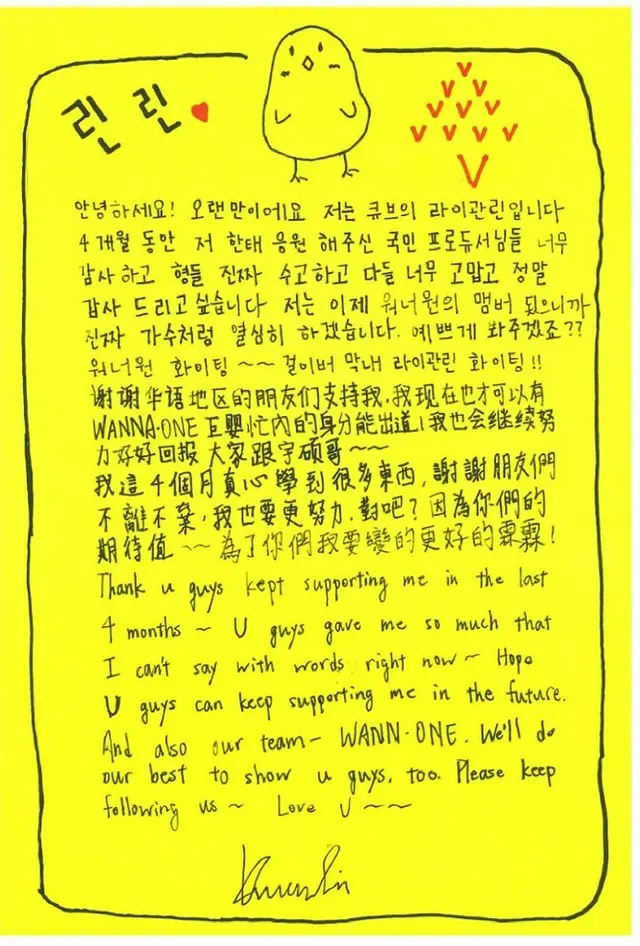 린 린
안녕하세요! 오랜만이에요 저는 큐브의 라이관린입니다
4개월 동안 저 한태 응원 해주신 국민 프로듀서님들 너무
감사하고 형들 진짜 수고하고 다들 너무 고맙고 정말
감사 드리고 싶습니다 저는 이제 워너원의 맴버 됬으니까
진짜 가수처럼 열심히 하겠습니다. 예쁘게 봐주겠죠??
워너원 화이팅 ~~ 막내 라이관린 화이팅!!
谢谢华语地区的朋友们支持我,我现在也才可以有
WANNA·ONE 互婴忙內的身分能出道,我也会继续努
力好好回报大家跟宇硕哥~~
我這4個月真心學到很多東西,謝謝朋友們
不離不棄,我也要更努力,對吧? 因為你們的
期待值 ~~ 為了你們我要變的更好的霖霖!
Thank u guys kept supporting me in the last
4 months ~ U guys gave me so much that
I can't say with words right now ~ Hope
U guys can keep supporting me in the future.
And also our team- WANN·ONE. We'll do
our best to show u guys, too. Please keep
following us ~ Love U ~~